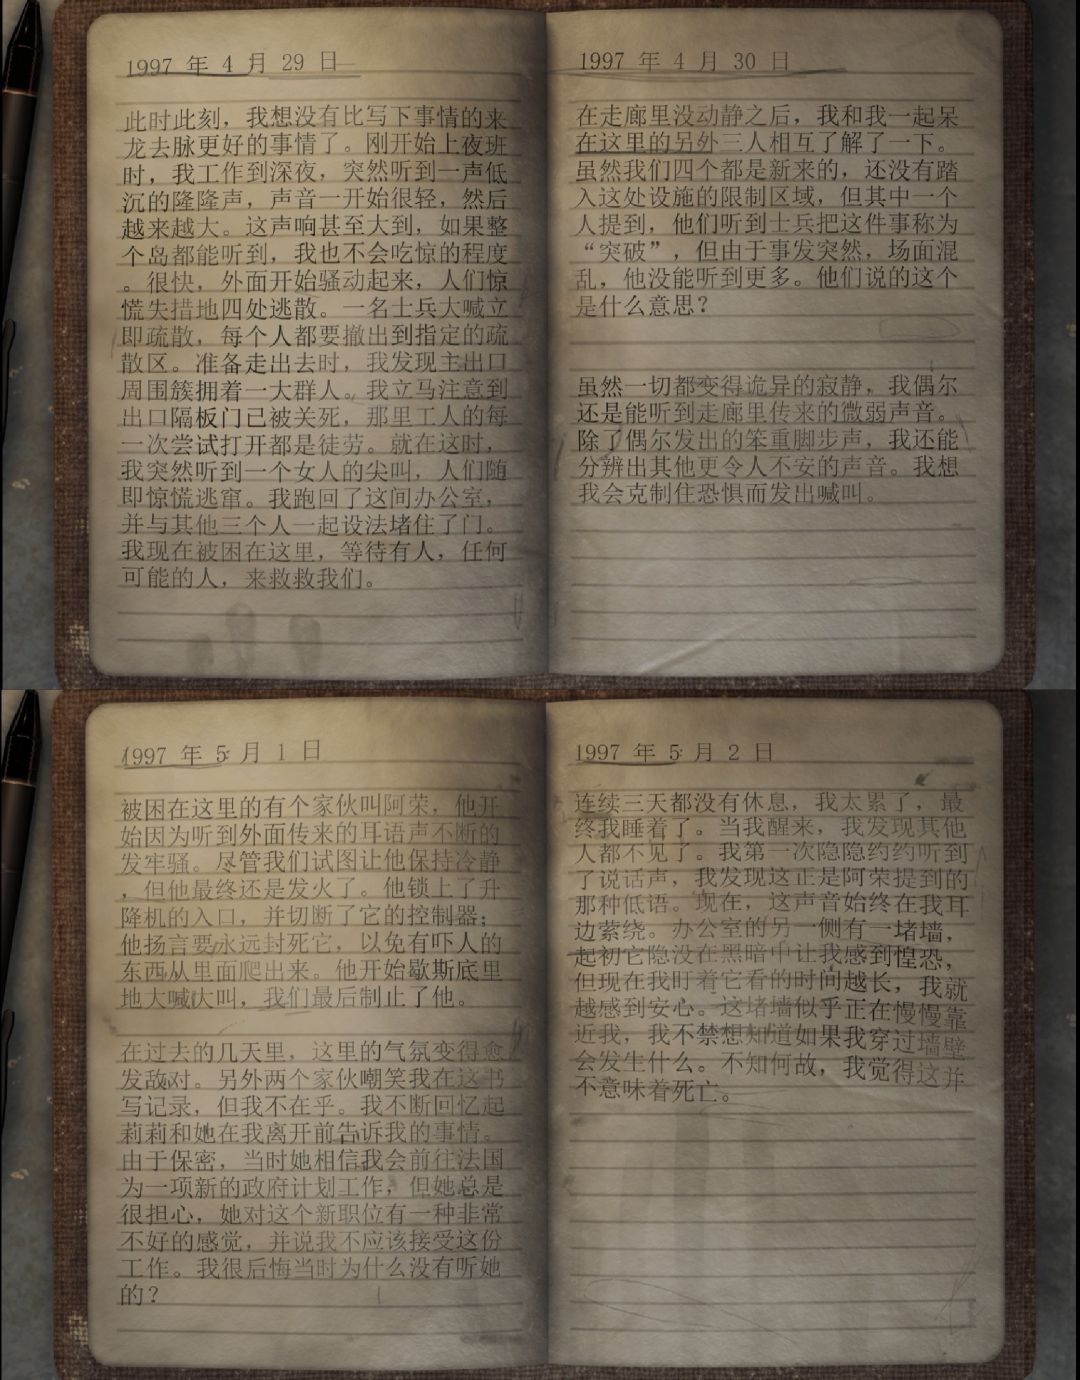 1997 年 4 月 29 日
此时此刻，我想没有比写下事情的来
龙去脉更好的事情了。刚开始上夜班
时，我工作到深夜，突然听到一声低
沉的隆隆声，声音一开始很轻，然后
越来越大。这声响甚至大到，如果整
个岛都能听到，我也不会吃惊的程度
。很快，外面开始骚动起来，人们惊
慌失措地四处逃散。一名士兵大喊立
即疏散，每个人都要撤出到指定的疏
散区。准备走出去时，我发现主出口
周围簇拥着一大群人。我立马注意到
出口隔板门已被关死，那里工人的每
一次尝试打开都是徒劳。就在这时，
我突然听到一个女人的尖叫，人们随
即惊慌逃窜。我跑回了这间办公室，
并与其他三个人一起设法堵住了门。
我现在被困在这里，等待有人，任何
可能的人，来救救我们。
1997 年 4 月 30 日
在走廊里没动静之后，我和我一起呆
在这里的另外三人相互了解了一下。
虽然我们四个都是新来的，还没有踏
入这处设施的限制区域，但其中一个
人提到，他们听到士兵把这件事称为
“突破”，但由于事发突然，场面混
乱，他没能听到更多。他们说的这个
是什么意思？
虽然一切都变得诡异的寂静，我偶尔
还是能听到走廊里传来的微弱声音。
除了偶尔发出的笨重脚步声，我还能
分辨出其他更令人不安的声音。我想
我会克制住恐惧而发出喊叫。
1997 年 5 月 1 日
被困在这里的有个家伙叫阿荣，他开
始因为听到外面传来的耳语声不断的
发牢骚。尽管我们试图让他保持冷静
，但他最终还是发火了。他锁上了升
降机的入口，并切断了它的控制器；
他扬言要永远封死它，以免有吓人的
东西从里面爬出来。他开始歇斯底里
地大喊大叫，我们最后制止了他。
在过去的几天里，这里的气氛变得愈
发敌对。另外两个家伙嘲笑我在这书
写记录，但我不在乎。我不断回忆起
莉莉和她在我离开前告诉我的事情。
由于保密，当时她相信我会前往法国
为一项新的政府计划工作，但她总是
很担心，她对这个新职位有一种非常
不好的感觉，并说我不应该接受这份
工作。我很后悔当时为什么没有听她
的？
1997 年 5 月 2 日
连续三天都没有休息，我太累了，最
终我睡着了。当我醒来，我发现其他
人都不见了。我第一次隐隐约约听到
了说话声，我发现这正是阿荣提到的
那种低语。现在，这声音始终在我耳
边萦绕。办公室的另一侧有一堵墙，
起初它隐没在黑暗中让我感到惶恐，
但现在我盯着它看的时间越长，我就
越感到安心。这堵墙似乎正在慢慢靠
近我，我不禁想知道如果我穿过墙壁
会发生什么。不知何故，我觉得这并
不意味着死亡。